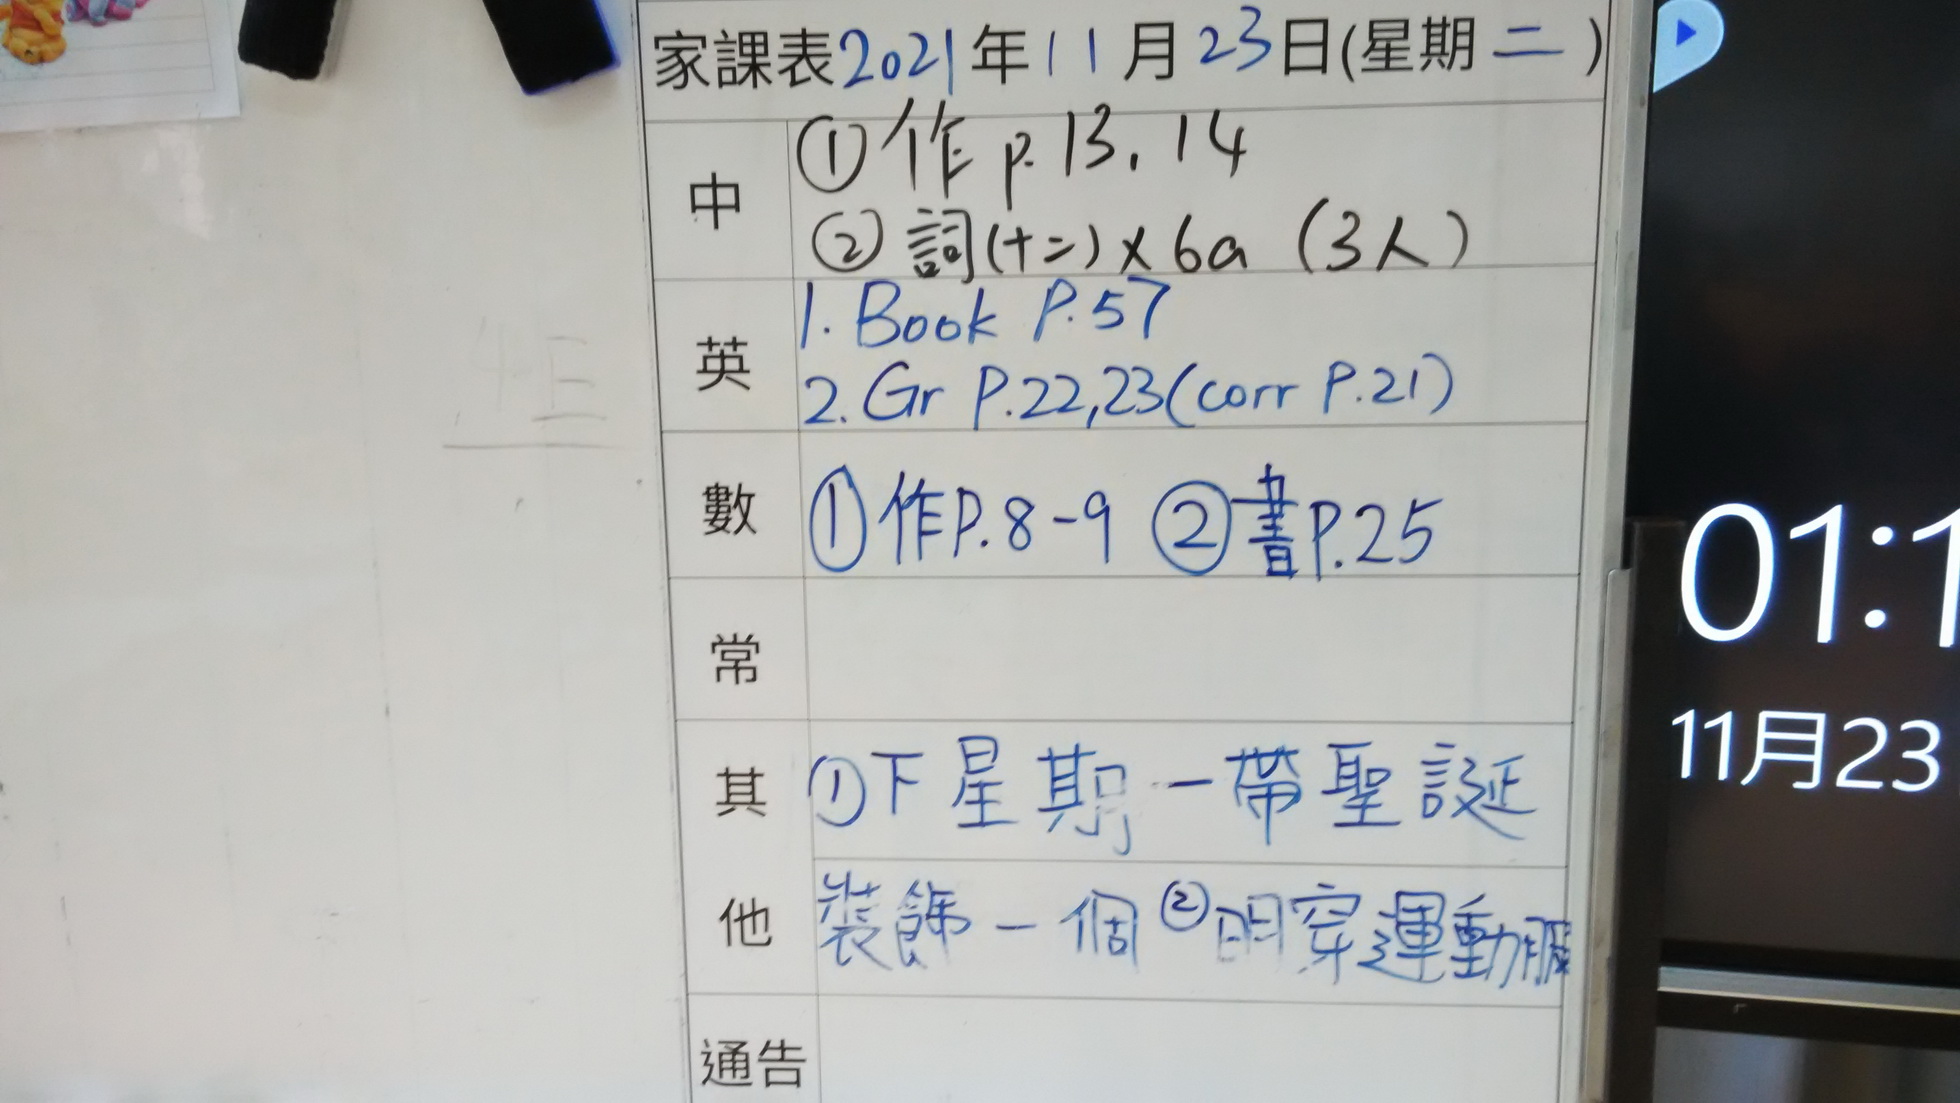 家課表2021年11月23日(星期二)
中
①作p.13.14
②詞(十二)×6a(3人)
英
1. Book P.57
2. Gr P.22,23(corr P.21)
數
①作P.8-9 ②書P.25
常
其他
①下星期一帶聖誕
裝飾一個②明穿運動服
通告
01:1
11月23